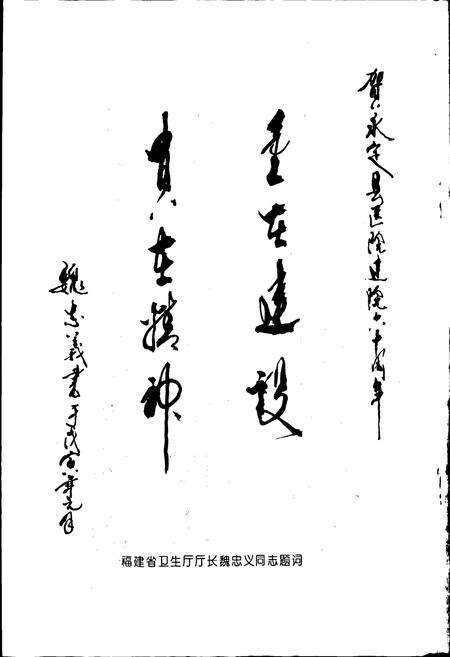 贺永定县医院建院六十周年
重在建设
贵在精神
魏忠義書于戊寅年元月
福建省卫生厅厅长魏忠义同志题词